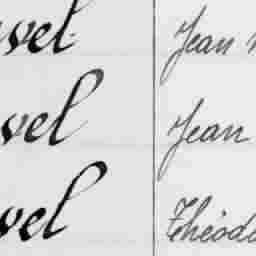 vel Jean
vel Jean
vel Théodo